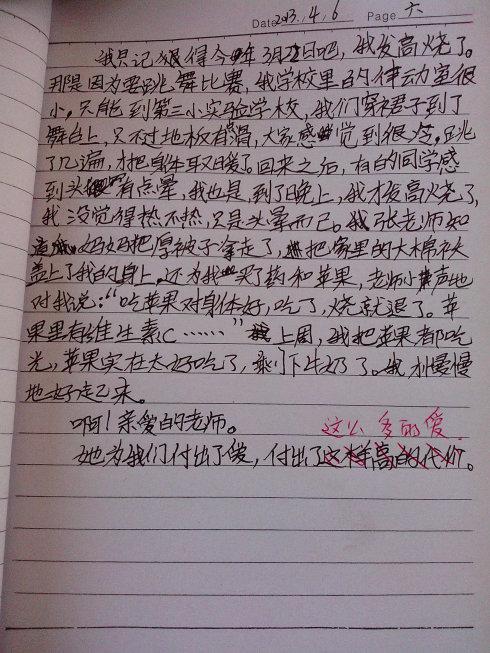 Date 2013.4.6 Page 六
我只记得今年3月2日吧，我发高烧了。
那是因为要跳舞比赛，我学校里的律动室很
小，只能到第三小实验学校，我们穿裙子到了
舞台上，只不过地板有点滑，大家感觉到很冷，跳
了几遍，才把身体取暖了。回来之后，有的同学感
到头有点晕，我也是，到了晚上，我才发高烧了，
我没觉得热不热，只是头晕而已。张老师知
道，妈妈把厚被子拿走了，把家里的大棉袄
盖上了我的身上，还为我买了药和苹果，老师小声地
对我说：“吃苹果对身体好，吃了，烧就退了。苹
果里有维生素C……”上周，我把苹果都吃
光，苹果实在太好吃了，剩下牛奶了。我才慢慢
地好起来。
啊！亲爱的老师。
这么多的爱
她为我们付出了爱，付出了这样高的代价。